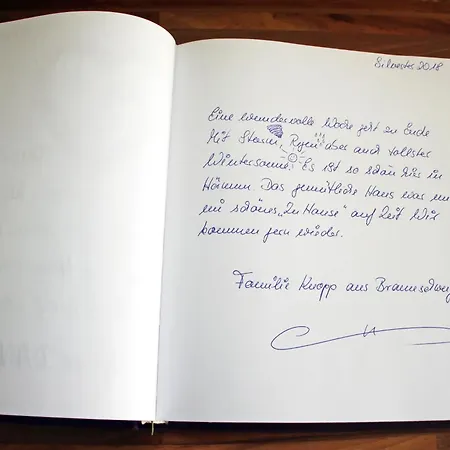 Silvester 2018
Eine wundervolle Woche geht zu Ende
Mit Sturm, Regen aber auch tollster
Wintersonne. Es ist so schön hier in
Hörnum. Das gemütliche Haus war un
ein schönes „Zu Hause" auf Zeit Wir
kommen gern wieder.
Familie Knopp aus Braunschweig